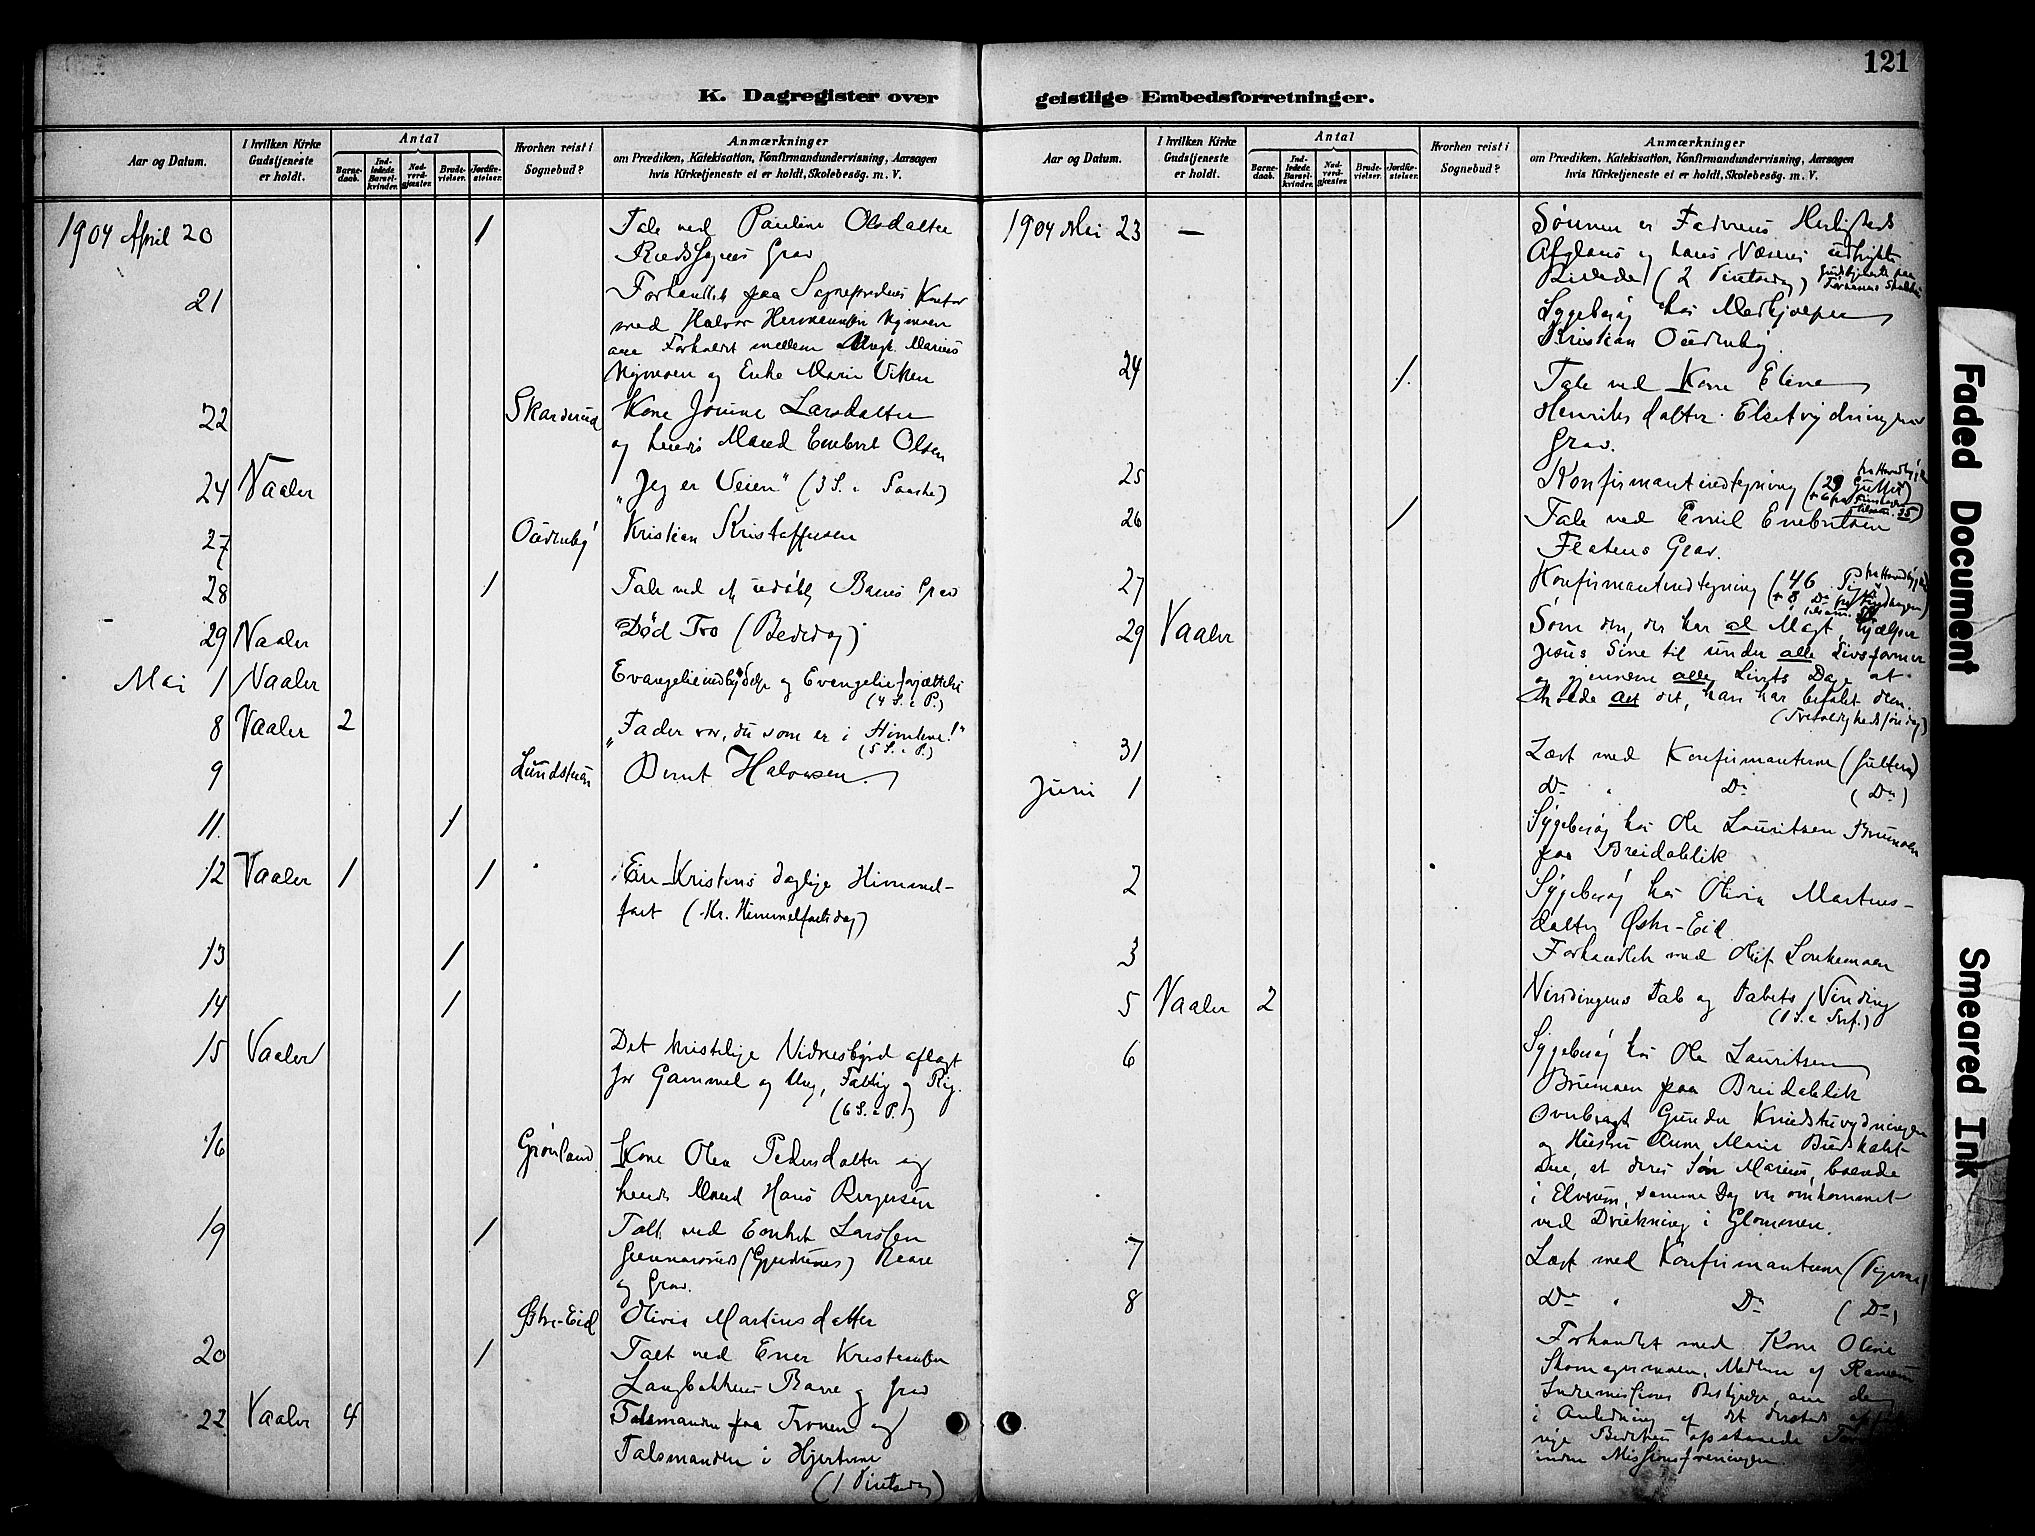 121
K. Dagregister over geistlige Embedsforretninger.
Aar og Datum.
I hvilken Kirke Gudstjeneste er holdt.
Antal
Barne-daab.
Ind-ledede Barsel-kvinder.
Nad-verd-gjæster.
Brude-vielser.
Jordfæ-stelser.
Hvorhen reist i Sognebud?
Anmærkninger
om Prædiken, Katekisation, Konfirmandundervisning, Aarsagen
hvis Kirketjeneste ei er holdt, Skolebesøg. m. V.
1904 April 20 / Tale ved Pauline Olsdatter
Grav
21 Forhandlet paa Sognepræstens Kontor
med Halvor Hermansen Nymoen
Forholdet mellem Ungk. Marius
Nymoen og Enke Marie Viken
22 Skarderud Kone Jonine Larsdatter
og hendes Mand Enebret Olsen
24 Vaaler "Jeg er Veien" (3 S. e. Paaske)
27 Kristian Kristoffersen
28 / Tale ved et udøbt Barns Grav
29 Vaaler Død Tro (Bededag)
Mai 1 Vaaler Evangelieindbydelse og Evangelieforjættelse
(4 S. e. P.)
8 Vaaler 2 "Fader vor, du som er i Himlene!"
(5 S. e. P.)
9 Bernt Halvorsen
11. /
12 Vaaler 1 / En Kristens daglige Himmel-
fart (Kr. Himmelfartsdag)
13 /
14 /
15 Vaaler Det kristelige Vidnesbyrd aflagt
for Gammel og Ung, Fattig og Rig.
(6 S. e. P.)
16 Grønland Kone Olea Pedersdatter og
hendes Mand Hans Birgersen
19 / Tale ved Embret Larsen
Baare
og Grav.
Østre-Eid Olivia Martinusdatter
20 / Tale ved Einer Kristiansen
Langbakkens Baare og Grav
22 Vaaler 4 Talsmanden fra Tronen og
Talsmanden i Hjerterne
(1 Pintsedag)
Aar og Datum.
I hvilken Kirke Gudstjeneste er holdt.
Antal
Barne-daab.
Ind-ledede Barsel-kvinder.
Nad-verd-gjæster.
Brude-vielser.
Jordfæ-stelser.
Hvorhen reist i Sognebud?
Anmærkninger
om Prædiken, Katekisation, Konfirmandundervisning, Aarsagen
hvis Kirketjeneste ei er holdt, Skolebesøg. m. V.
1904 Mai 23 — Sønnen er Faderens Herligheds
Afglans og hans Væsens udtrykte
Billede (2 Pintsedag) Gudstjeneste paa
Sygebesøg hos Medhjælper
Kristian
24 / Tale ved Kone Eline
Henriksdatter
Grav.
25 Konfirmantindtegning (29 Gutter)
26 / Tale ved Emil Enebretsen
Flatens Grav.
27 Konfirmantindtegning (46 Piger
29 Vaaler Som den, der har al Magt, hjælper
Jesus Sine til under alle Livsformer
og gjennem alle Livets Dage at
holde alt det, han har befalet dem.
(Trefoldighedssøndag)
31 Læst med Konfirmanterne (Gutterne)
Juni 1 Do Do (Do)
Sygebesøg hos Ole Lauritsen Brumoen
paa Breidablik
2 Sygebesøg hos Olivia Martinus-
datter Østre-Eid
3 Forhandlet med
5 Vaaler 2 Vindingens Tab og Tabets Vinding
(1 S. e. Tref.)
6 Sygebesøg hos Ole Lauritsen
Brumoen paa Breidablik
Overbragt Gunder
og Hustru Anne Marie Budskabet
om, at deres Søn Marius, boende
i Elverum, samme Dag var omkommet
ved Drukning i Glommen.
7 Læst med Konfirmanterne (Pigerne)
8 Do Do (Do)
Forhandlet med Kone Oline
Skomagermoen, Medlem af
Indremissions
i Anledning af det
opstaaede
inden Missionsforeningen.
Faded Document
Smeared Ink